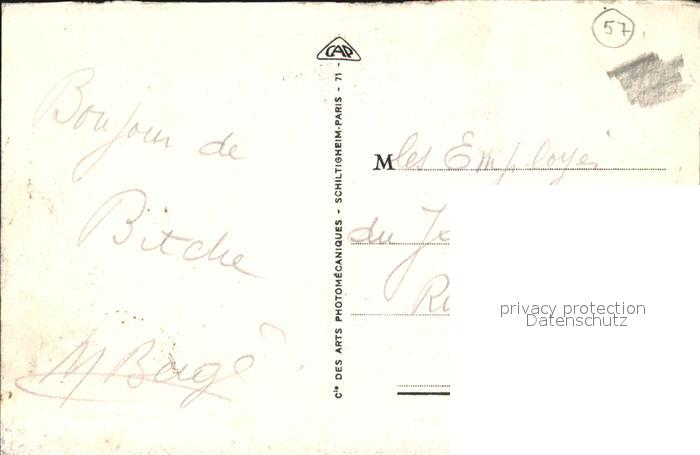 Bonjour de
Bitche
CAP
Cie DES ARTS PHOTOMÉCANIQUES - SCHILTIGHEIM-PARIS - 71 -
57
M les Employés
du
privacy protection
Datenschutz